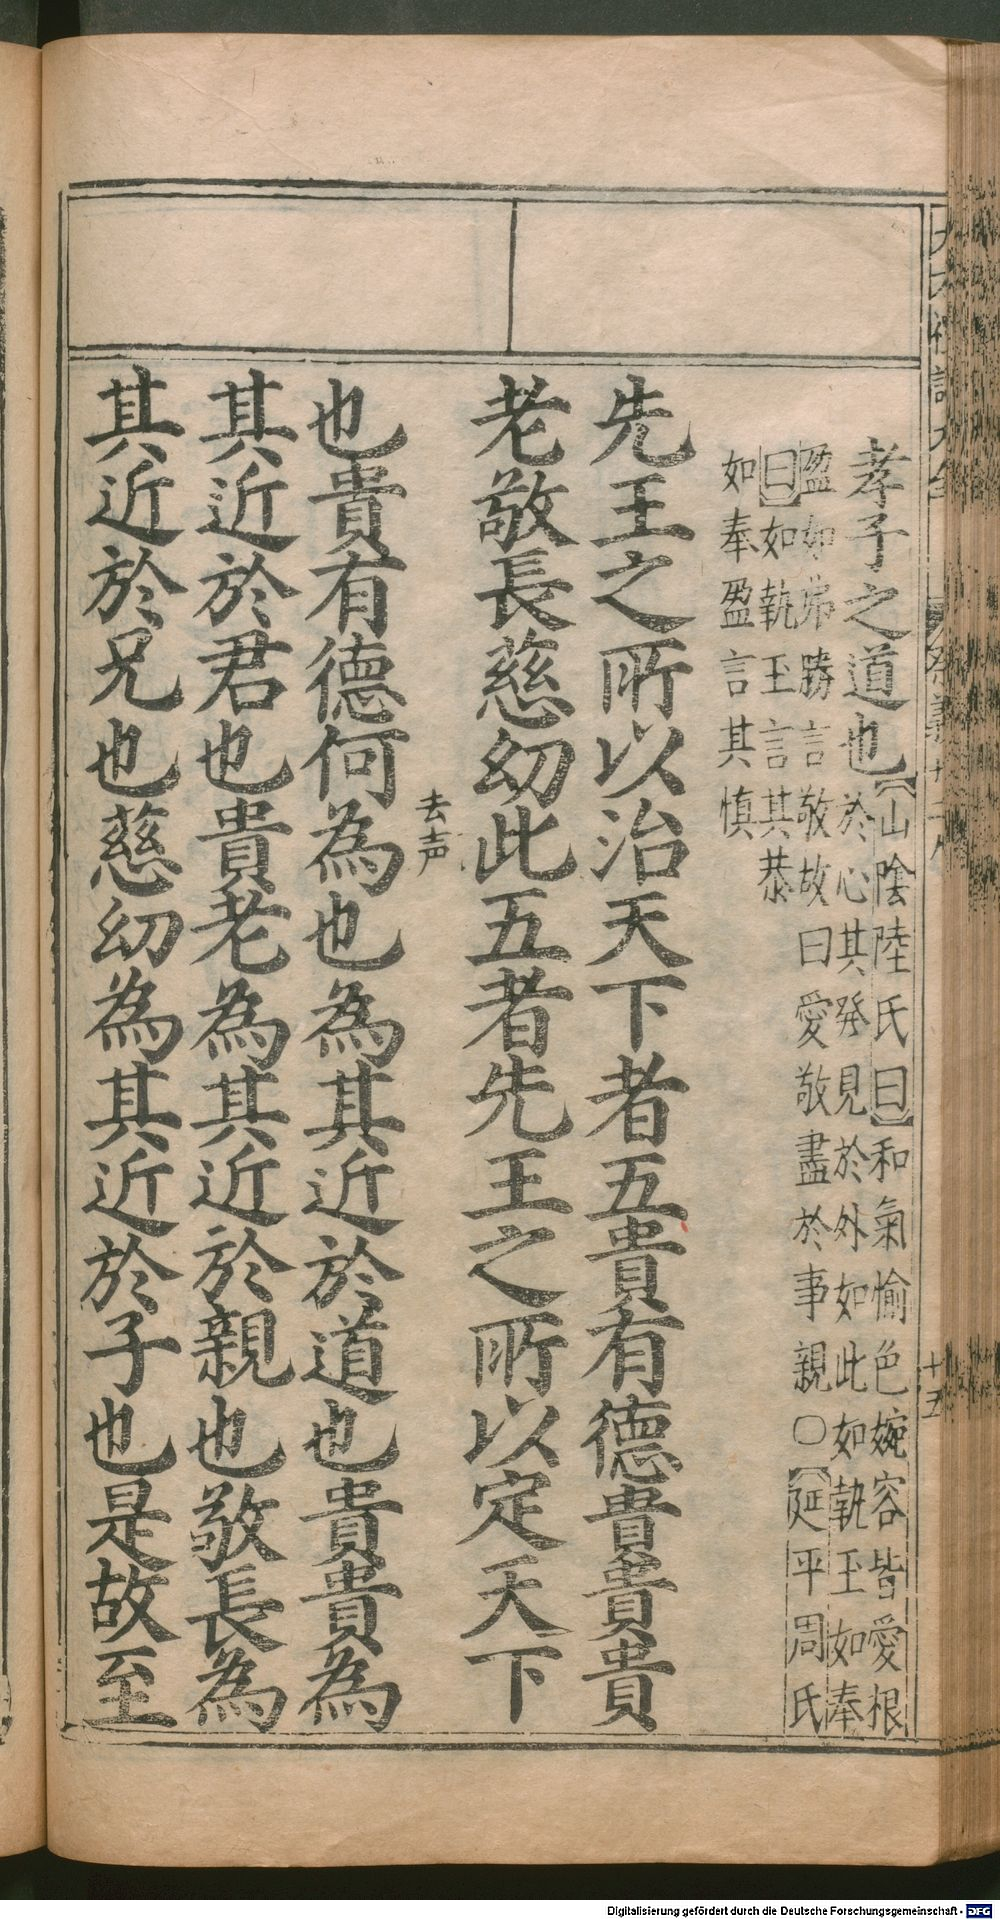 孝子之道也【山陰陸氏曰】和氣愉色婉容皆愛根
於心其発見於外如此如執玉如奉
盈如弗勝言敬故曰愛敬盡於事親○【延平周氏
曰】如執玉言其恭
如奉盈言其慎
先王之所以治天下者五貴有德貴貴貴
老敬長慈幼此五者先王之所以定天下
去声
也貴有德何為也為其近於道也貴貴為
其近於君也貴老為其近於親也敬長為
其近於兄也慈幼為其近於子也是故至
十五
Digitalisierung gefördert durch die Deutsche Forschungsgemeinschaft - DFG